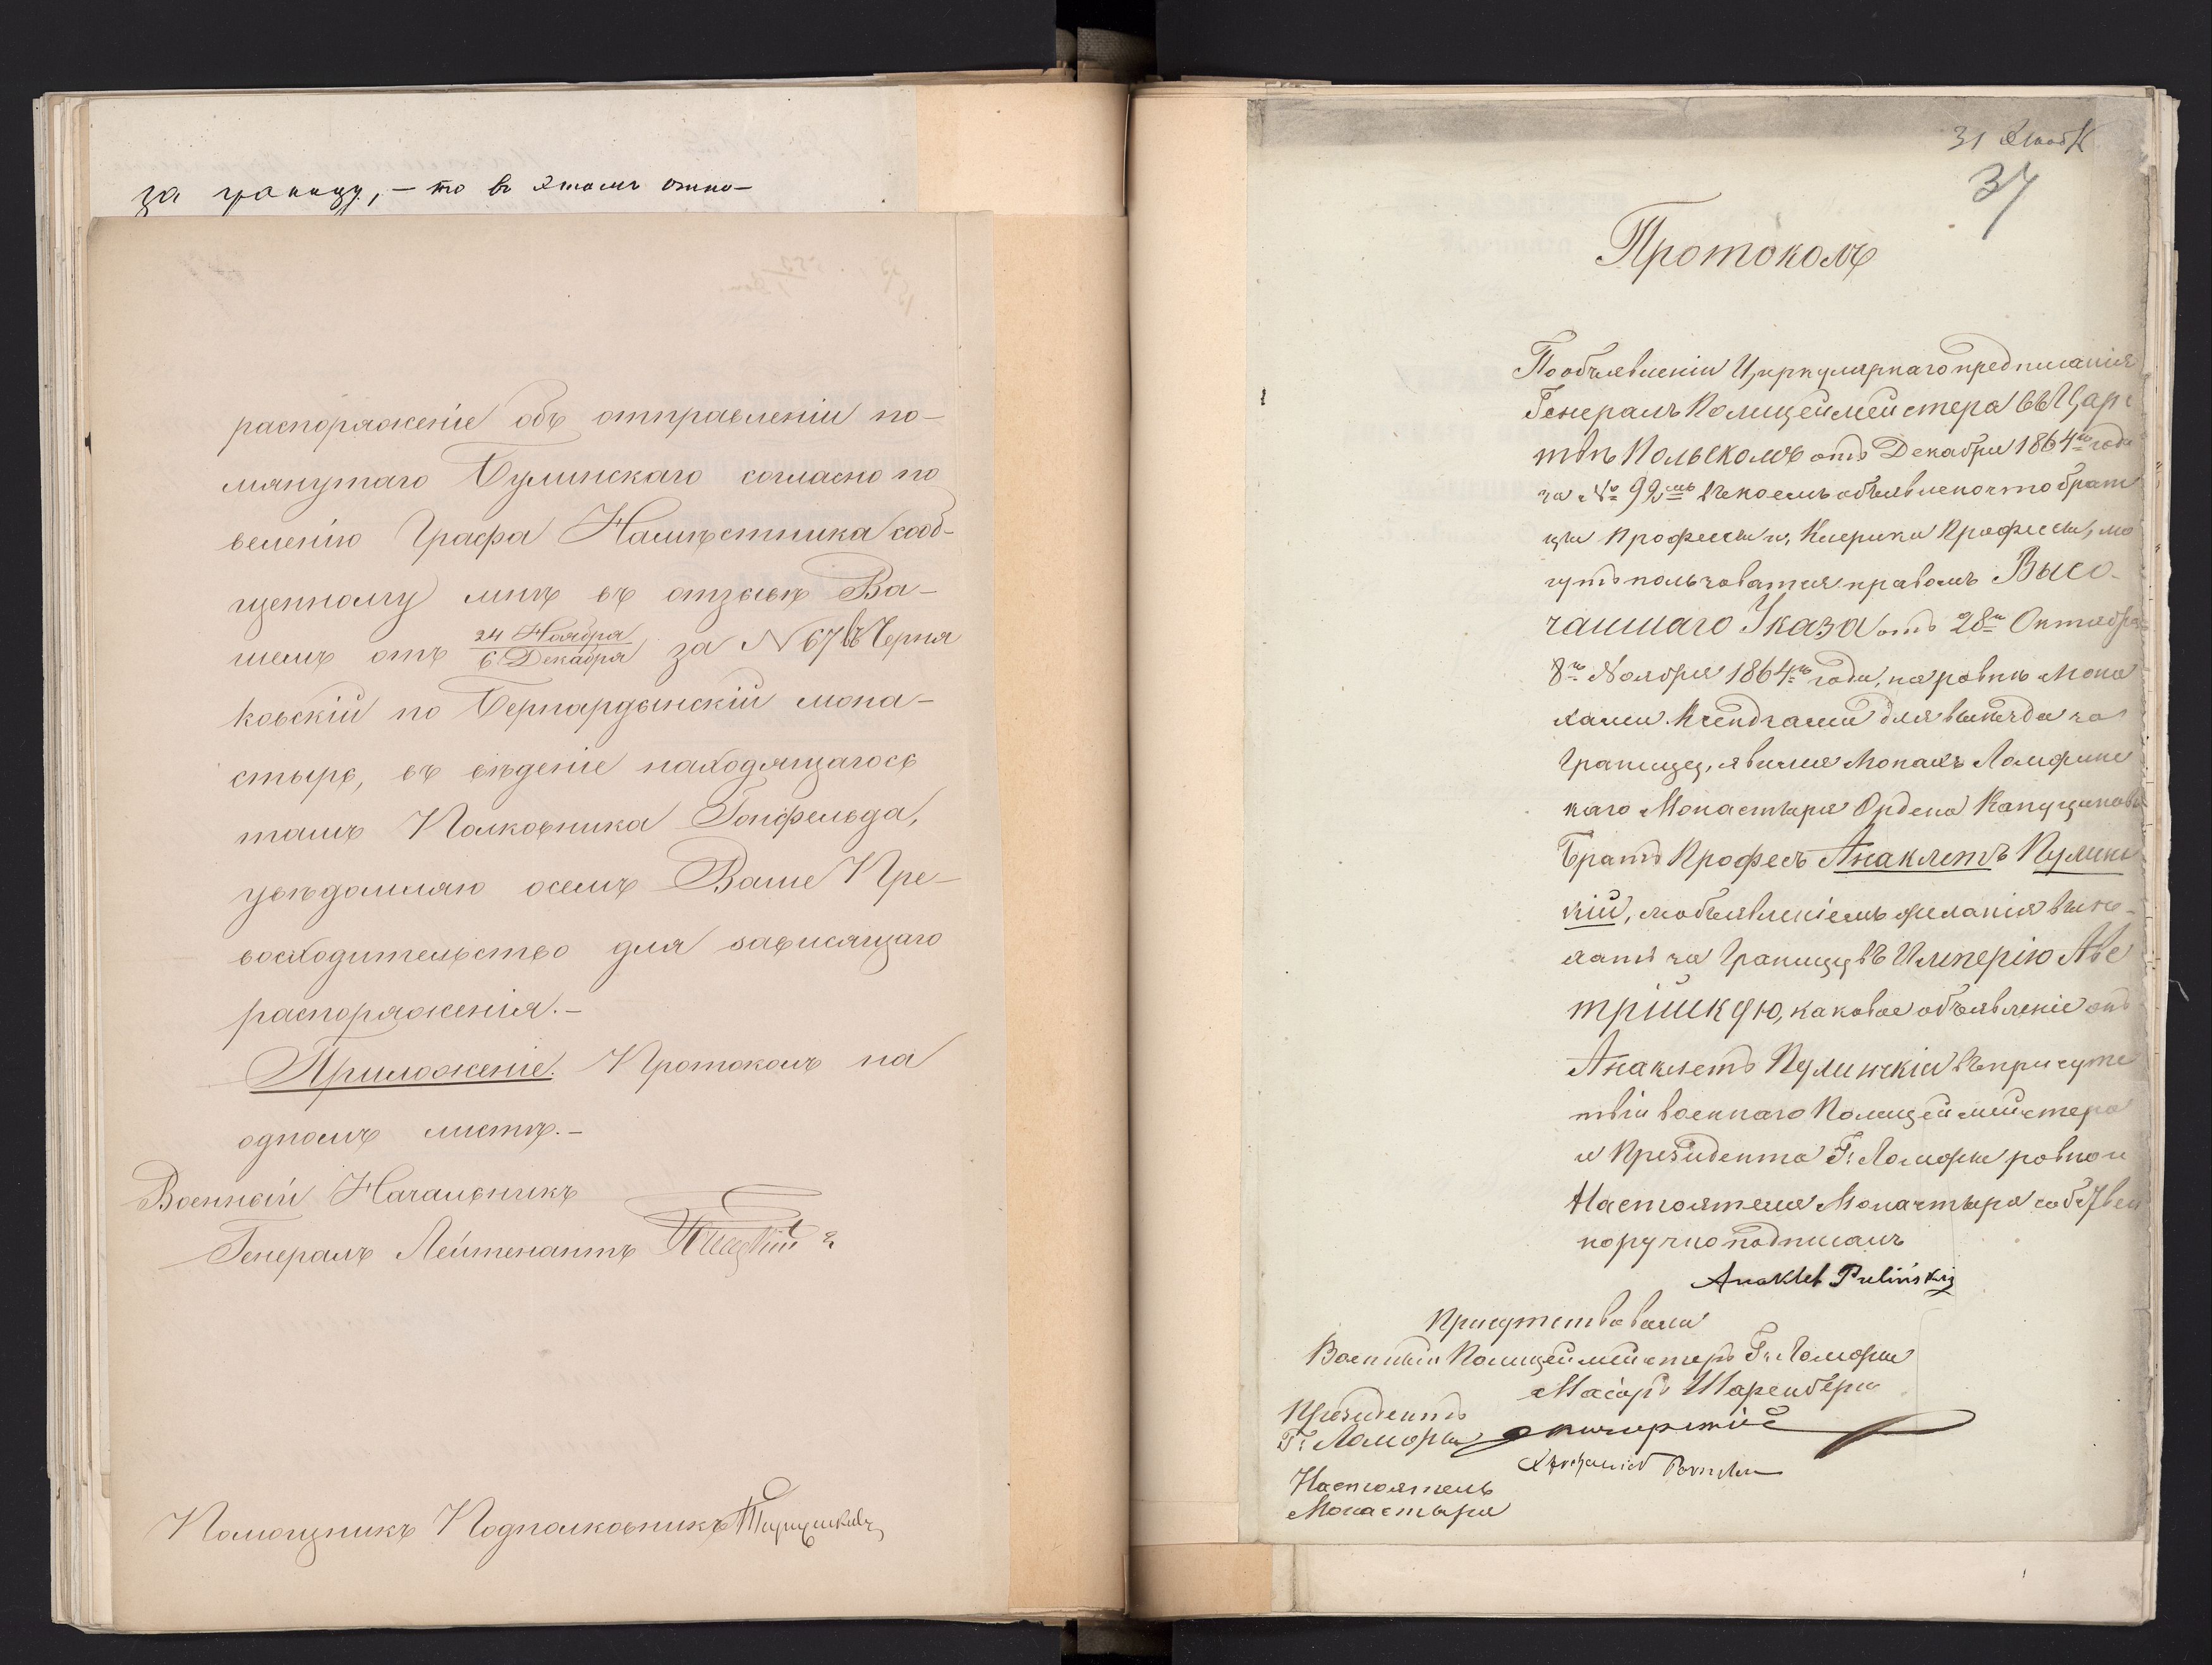 за границу, – то въ этомъ отно–
распоряженіе объ отправленіи по–
мянутаго Булинскаго согласно по
велѣнію Графа Намѣстника сооб–
щенному мнѣ въ отзывѣ Ва–
шемъ отъ 24 Ноября / 6 Декабря за N 67 въ Черня
ковскій по Бернардынскій мона–
стырь, въ вѣденіе находящагося
тамъ Полковника Гонфельда,
увѣдомляю осемъ Ваше Пре–
восходительство для зависящаго
распоряженія.–
Приложеніе. Протоколъ на
одномъ листѣ.–
Военный Начальникъ
Генералъ Лейтенантъ
Помощникъ Подполковникъ
31
37
Протоколъ
По объявленіи Циркулярнаго предписанія
Генералъ Полицеймейстера въ Царс
твѣ Польскомъ отъ Декабря 1864го года
за № 99мъ въ коемъ объявлено что брат
цы Професы и, Клерики Професы, мо
гутъ пользоватся правомъ Высо–
чаишаго Указа отъ 28го Октября
8го Ноября 1864го года, на ровнѣ Мона
хами Ксендзами для выѣзда за
Границу, явился Монахъ Ломжинс
каго Монастыря Ордена Капуциновъ
Братъ Професъ Анаклетъ Пулинс
кій, съ объявленіемъ желанія выѣ–
хать за Границу въ Имперію Авс
трійскую, каковое объявленіе онъ
Анаклетъ Пулинскій въ присутс
твіи военнаго Полицеймейстера
и Президента Г: Ломжи ровно и
Настоятеля Монастыря собствен
норучно подписалъ
Anaklet Puliński
Присутствовали
Военный Полицеймейстеръ Г: Ломжи
Маіоръ Шаренберг
Президентъ
Г: Ломжи
Настоятель
Монастыря